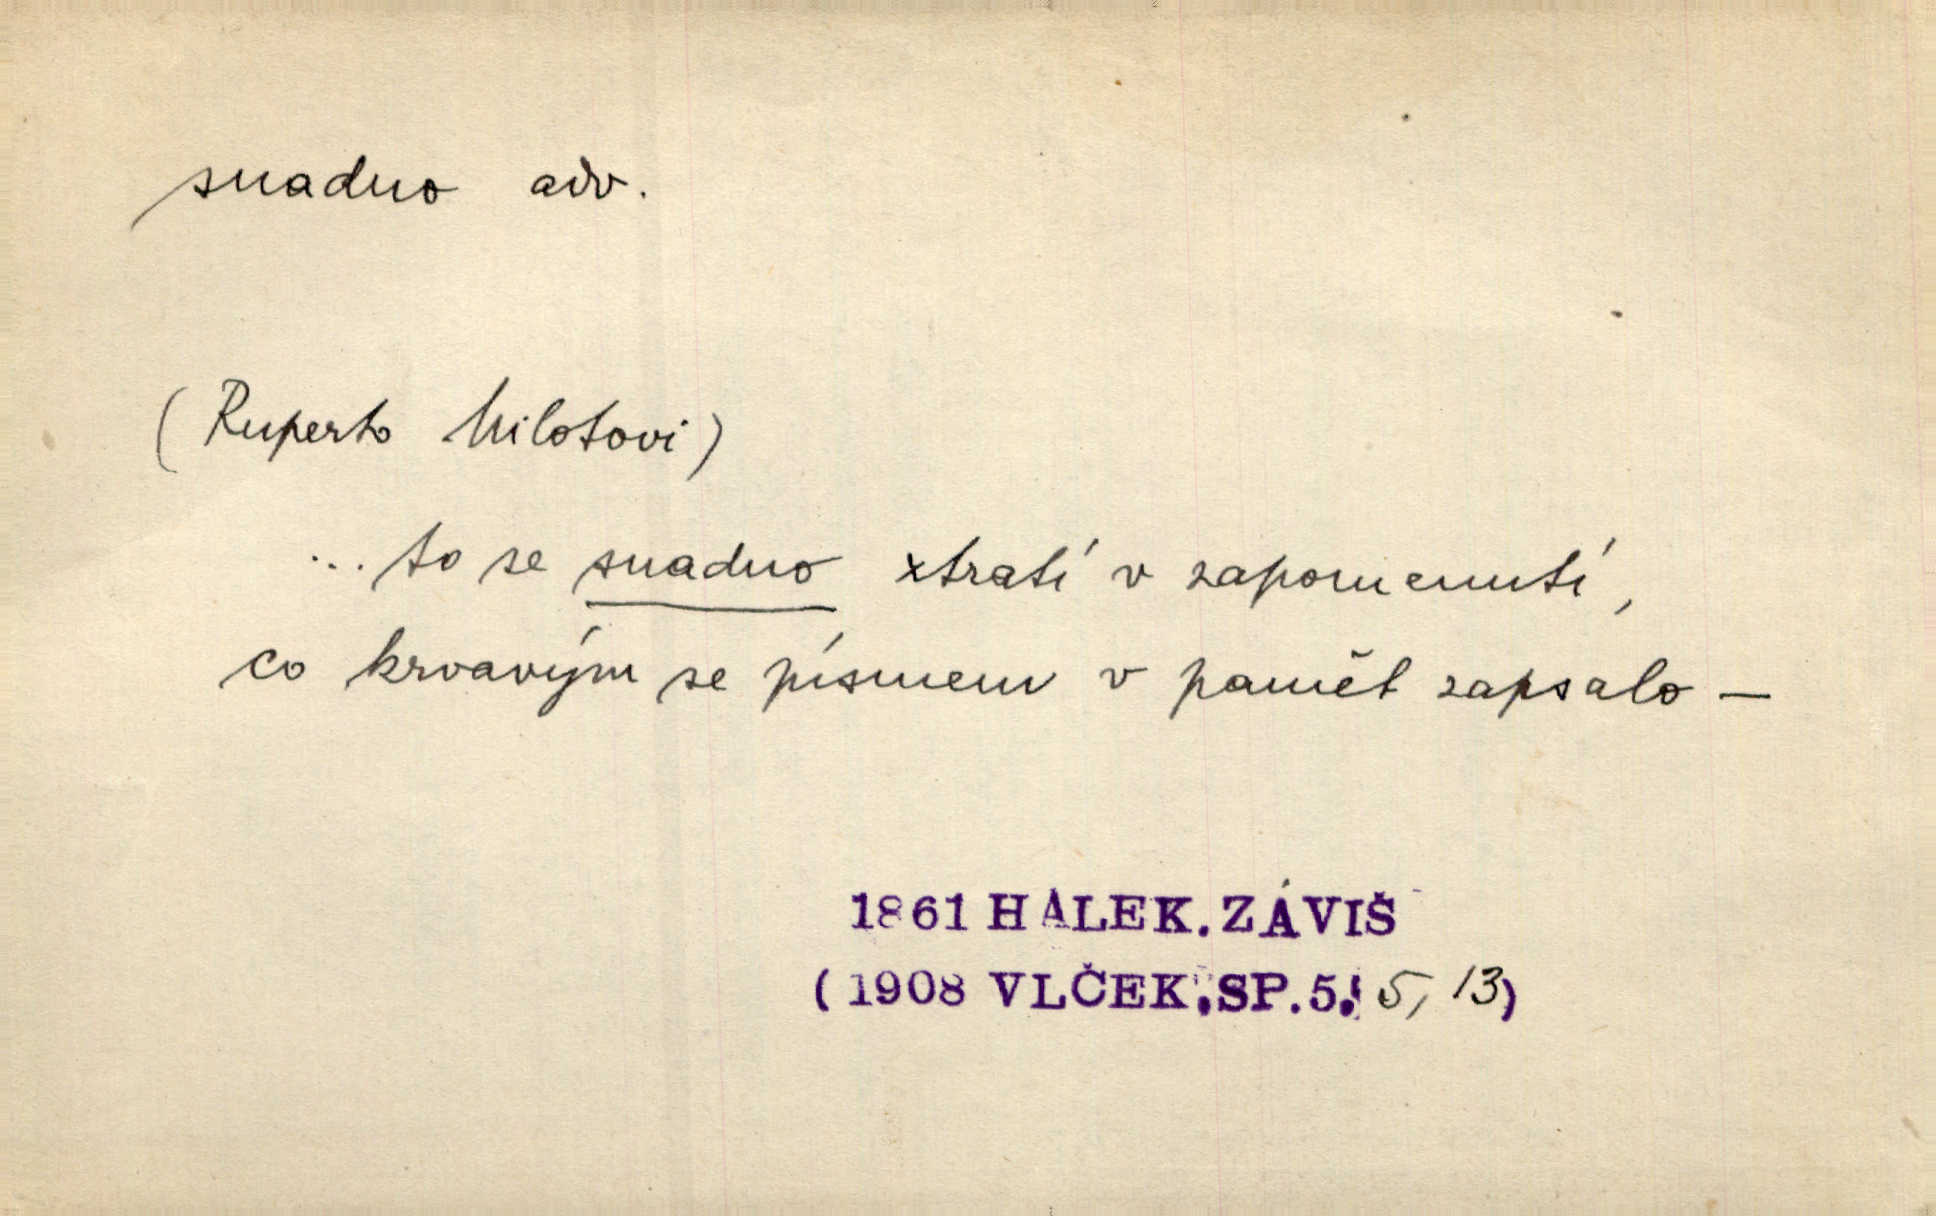 snadno adv.
(Ruperto Milotovi)
... to se snadno ztratí v zapomenutí,
co krvavým se písmem v paměť zapsalo –
1861 HALEK. ZÁVIŠ
(1908 VLČEK, SP. 5, 5, 13)